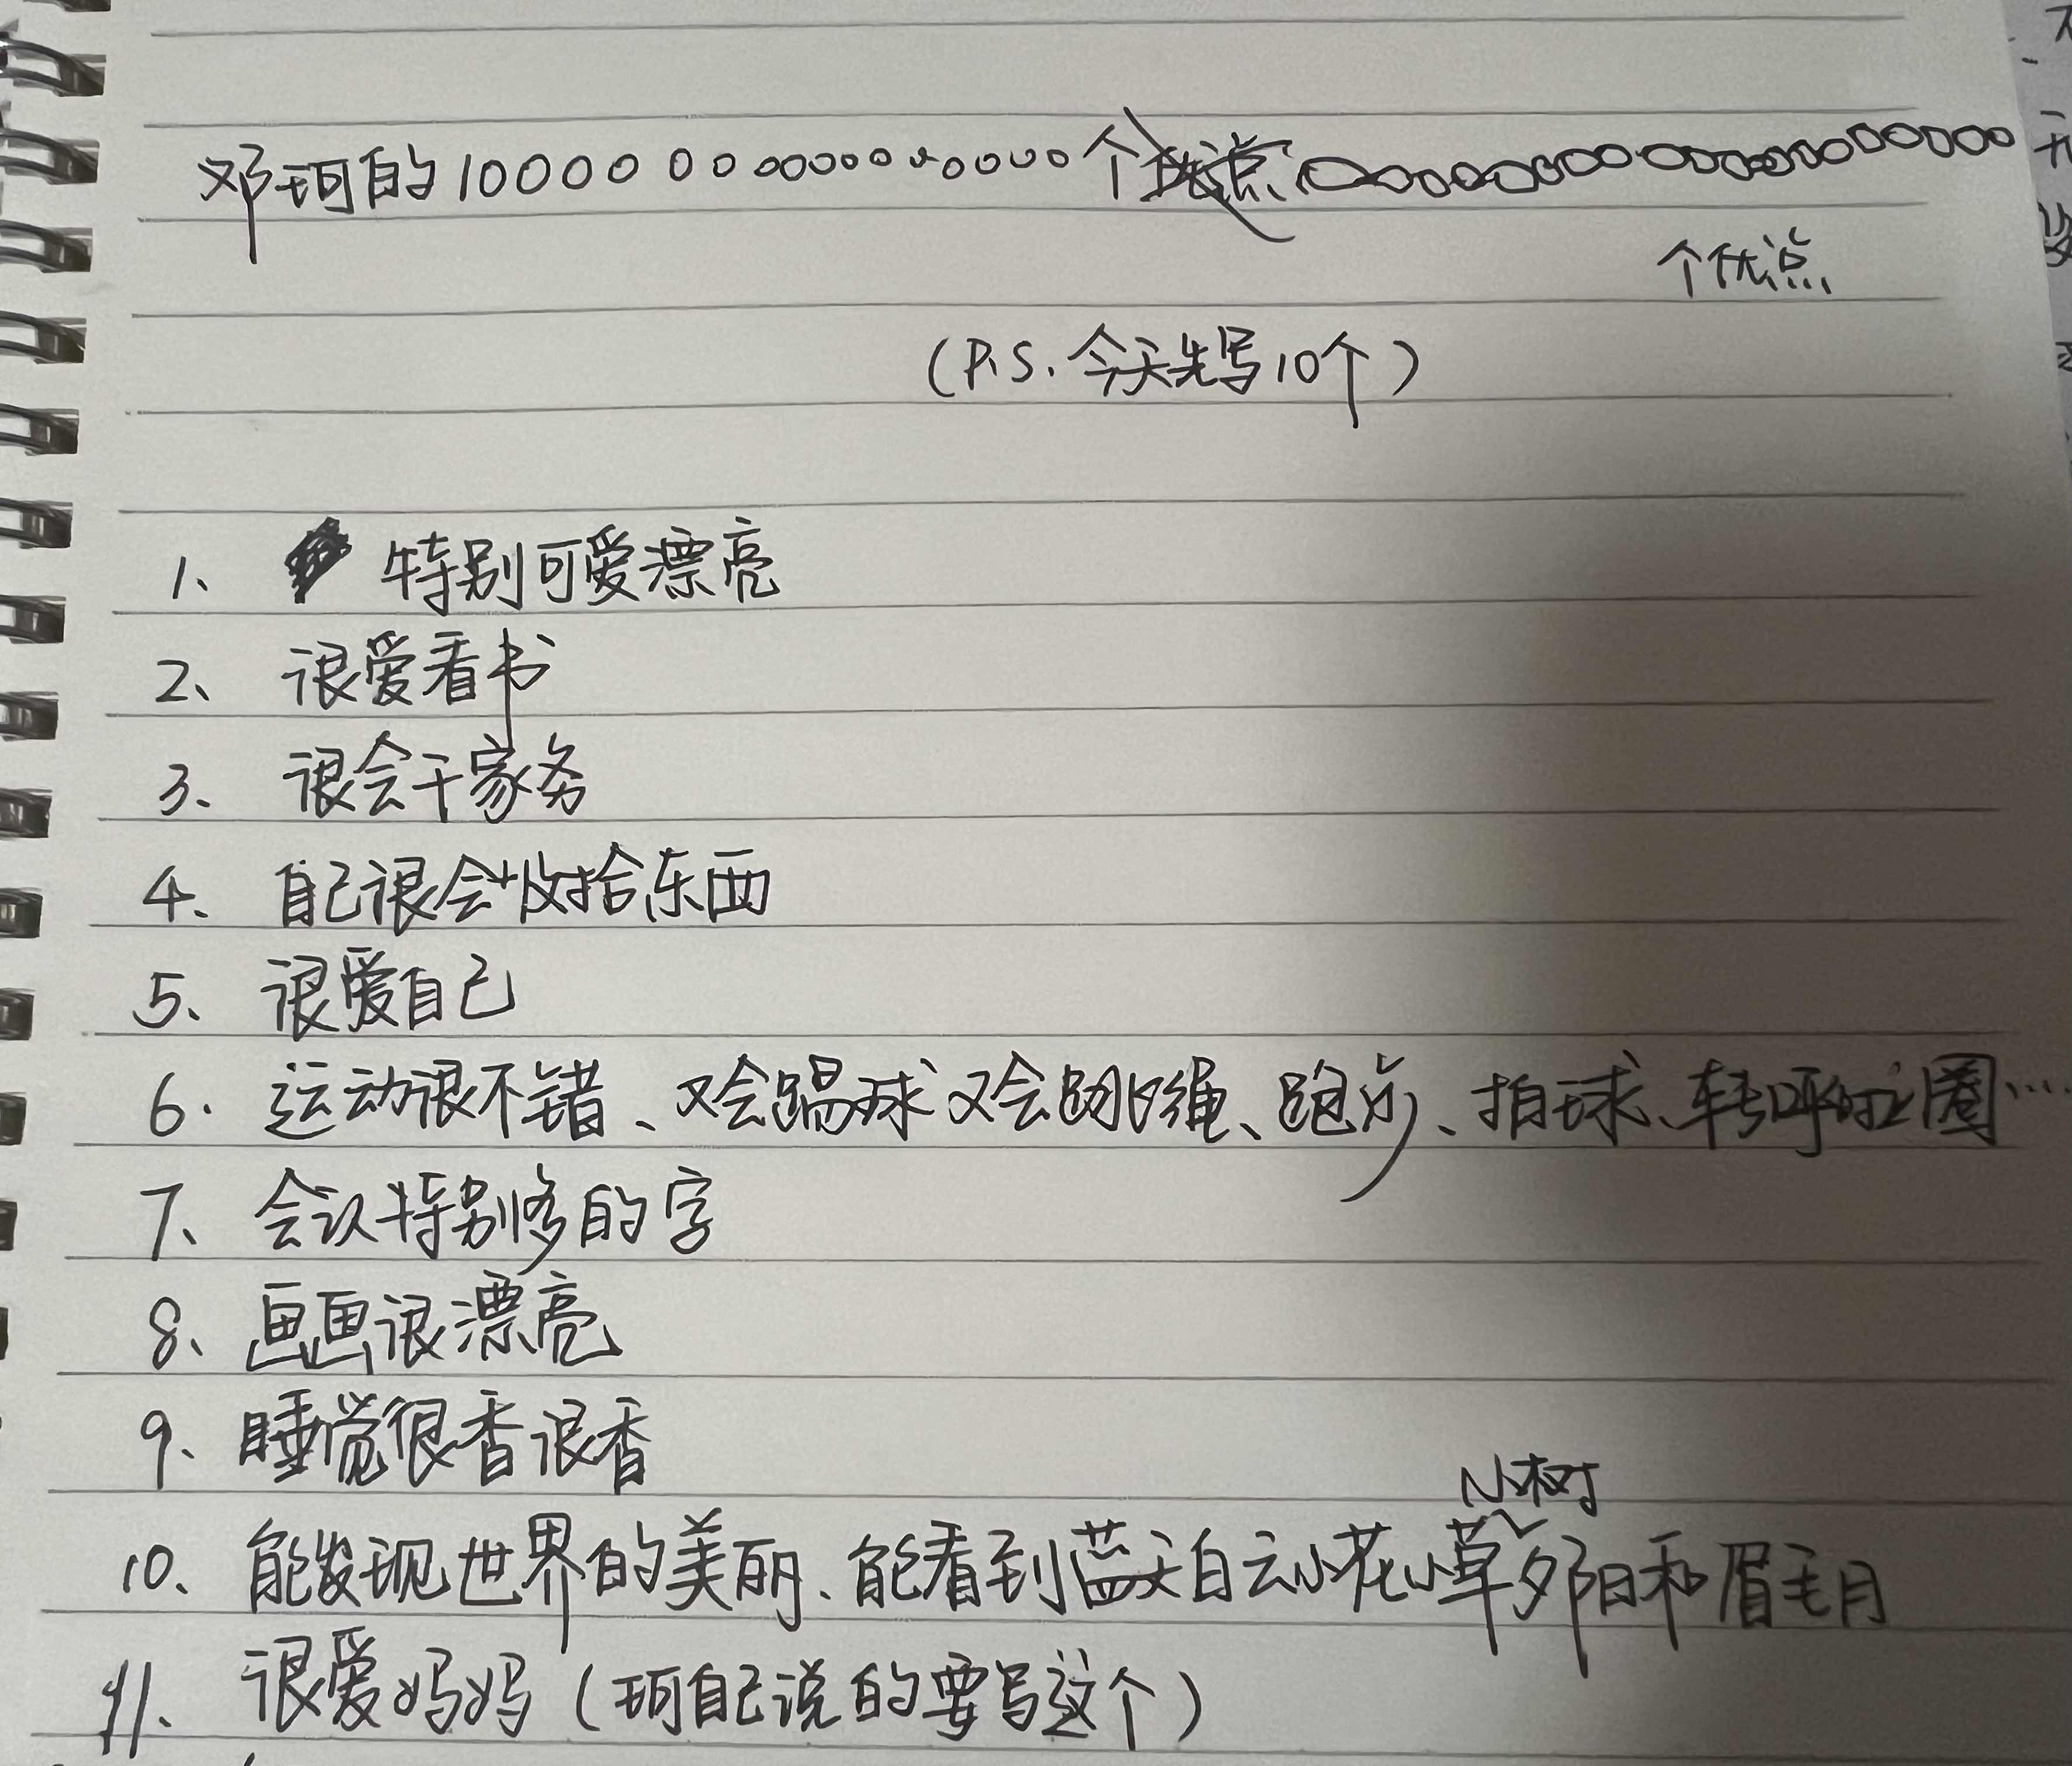 邓珂的10000000000000000000个优点00000000000000000000
个优点
(P.S. 今天先写10个)
1、特别可爱漂亮
2、很爱看书
3、很会干家务
4、自己很会收拾东西
5、很爱自己
6. 运动很不错、又会踢球又会跳绳、跑步、拍球、转呼啦圈…
7、会认特别多的字
8、画画很漂亮
9、睡觉很香很香
小树
10、能发现世界的美丽、能看到蓝天白云小花小草夕阳和眉毛月
11. 很爱妈妈(珂自己说的要写这个)